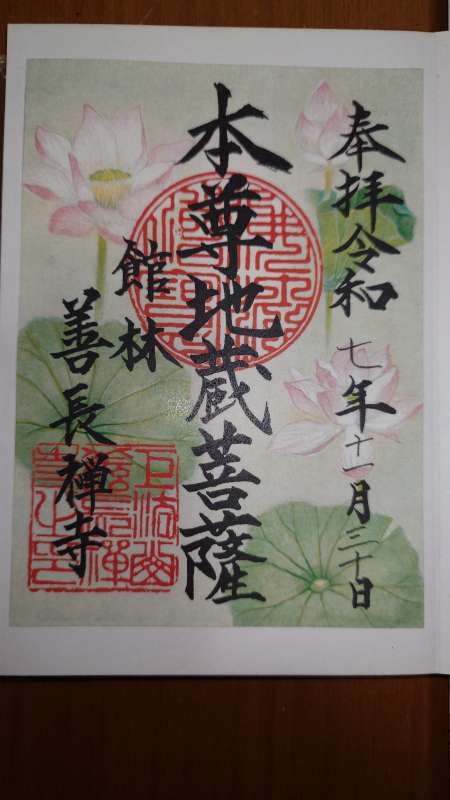 奉拝令和七年十一月三十日
本尊地蔵菩薩
館林
善長禅寺